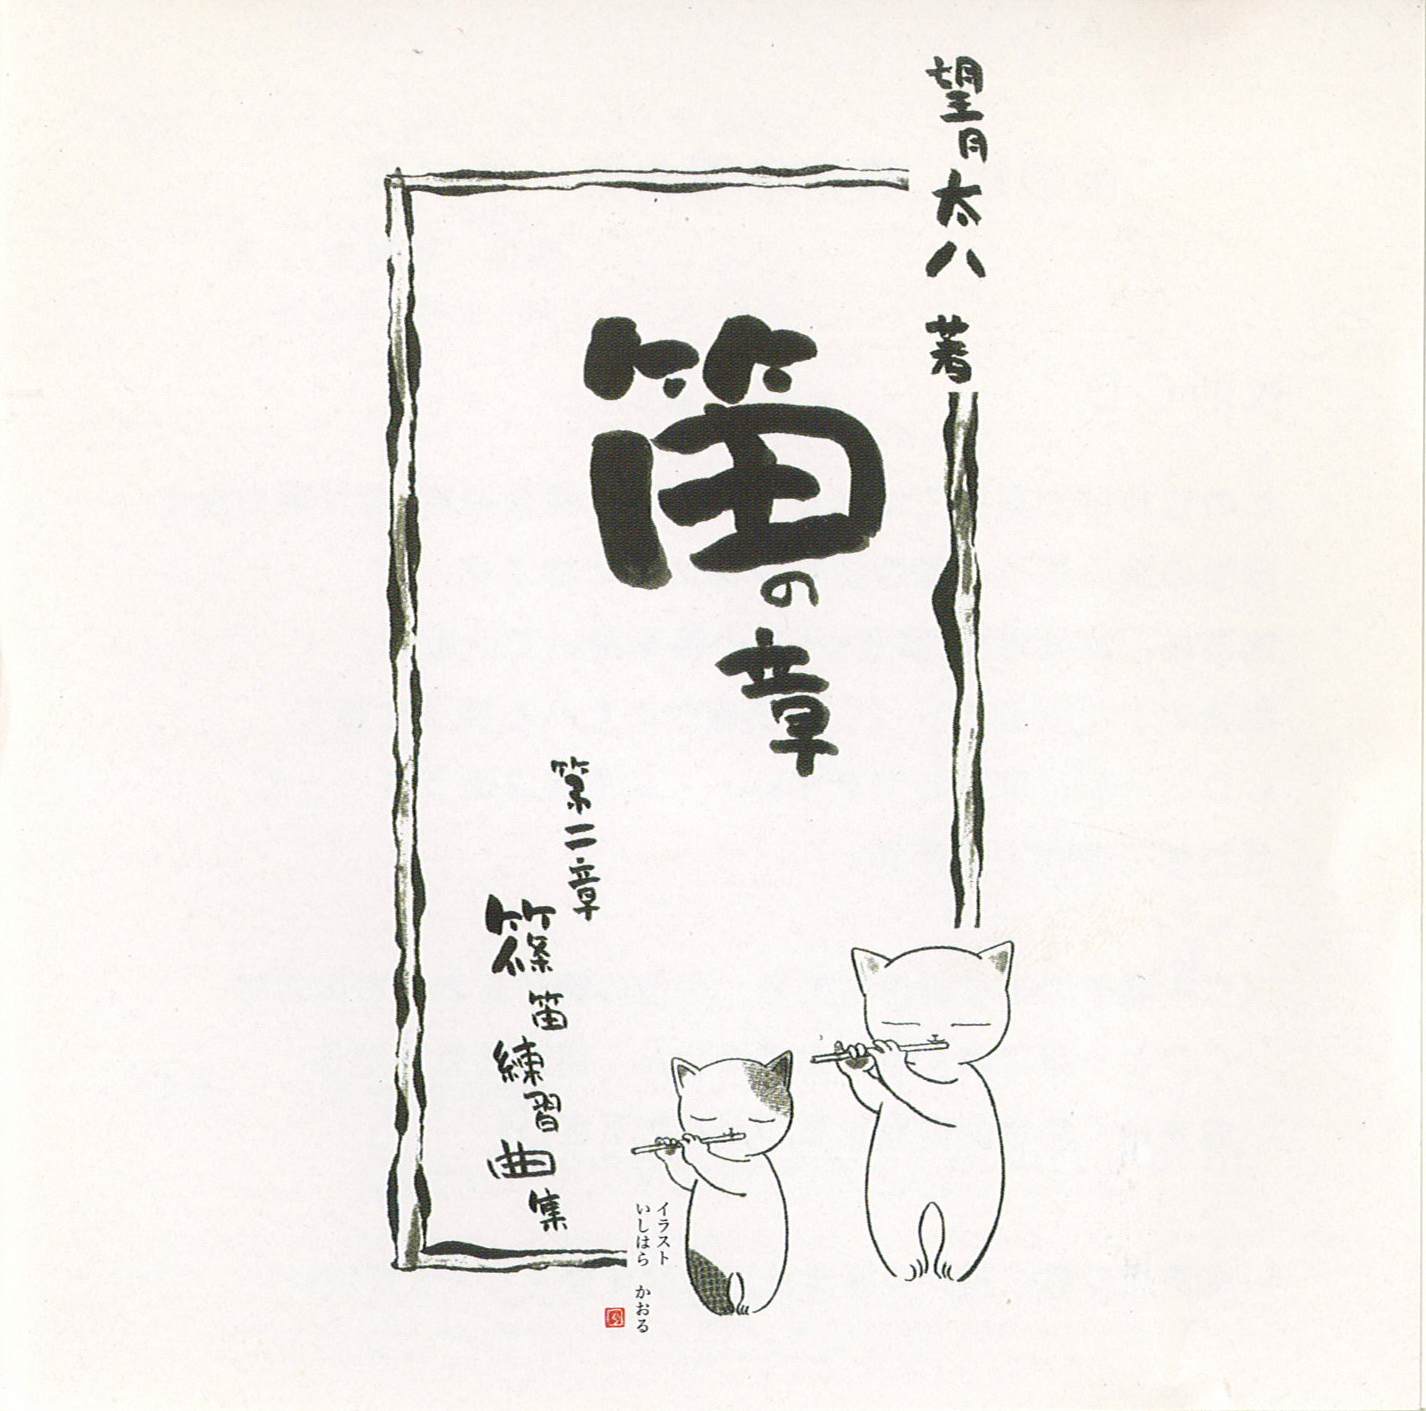 望月太八 著
笛の章
第二章
篠笛練習曲集
イラスト
いしはら かおる